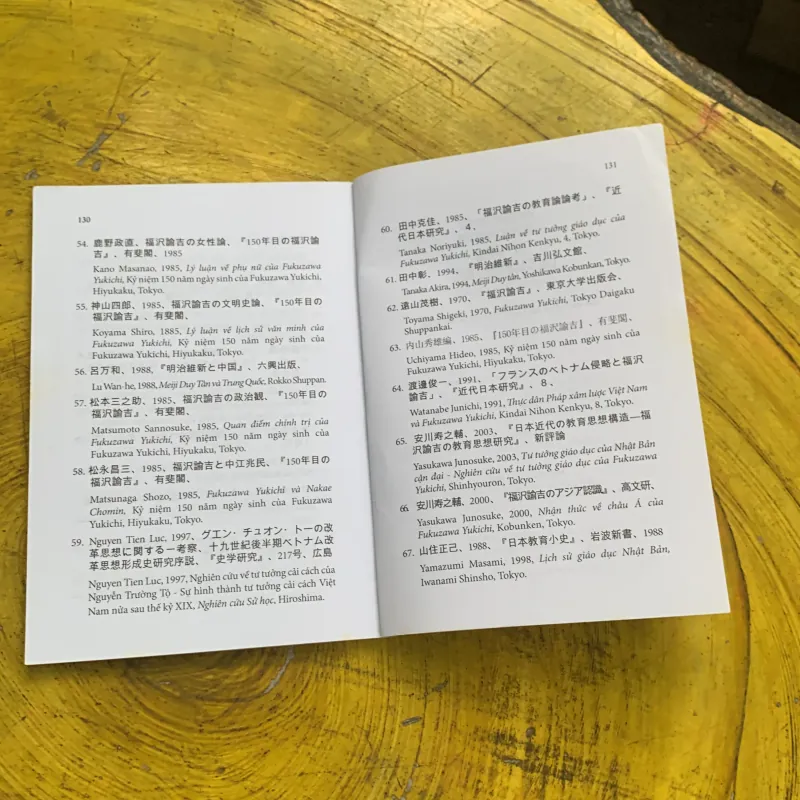 130
54. 鹿野政直、福沢諭吉の女性論、『150年目の福沢諭
吉』、有斐閣、1985
Kano Masanao, 1985, Lý luận về phụ nữ của Fukuzawa
Yukichi, Kỷ niệm 150 năm ngày sinh của Fukuzawa Yukichi,
Hiyukaku, Tokyo.
55. 神山四郎、1985、福沢諭吉の文明史論、『150年目の
福沢諭吉』、有斐閣、
Koyama Shiro, 1885, Lý luận về lịch sử văn minh của
Fukuzawa Yukichi, Kỷ niệm 150 năm ngày sinh của
Fukuzawa Yukichi, Hiyukaku, Tokyo.
56. 呂万和、1988、『明治維新と中国』、六興出版、
Lu Wan-he, 1988, Meiji Duy Tân và Trung Quốc, Rokko Shuppan.
57. 松本三之助、1985、福沢諭吉の政治観、『150年目の
福沢諭吉』、有斐閣、
Matsumoto Sannosuke, 1985, Quan điểm chính trị của
Fukuzawa Yukichi, Kỷ niệm 150 năm ngày sinh của
Fukuzawa Yukichi, Hiyukaku, Tokyo.
58. 松永昌三、1985、福沢諭吉と中江兆民、『150年目の
福沢諭吉』、有斐閣、
Matsunaga Shozo, 1985, Fukuzawa Yukichi và Nakae
Chomin, Kỷ niệm 150 năm ngày sinh của Fukuzawa
Yukichi, Hiyukaku, Tokyo.
59. Nguyen Tien Luc, 1997、グエン・チュオン・トーの改
革思想に関する一考察、十九世紀後半期ベトナム改
革思想形成史研究序説、『史学研究』、217号、広島
Nguyen Tien Luc, 1997, Nghiên cứu về tư tưởng cải cách của
Nguyễn Trường Tộ - Sự hình thành tư tưởng cải cách Việt
Nam nửa sau thế kỷ XIX, Nghiên cứu Sử học, Hiroshima.
131
60. 田中克佳、1985、「福沢諭吉の教育論論考」、『近
代日本研究』、4、
Tanaka Noriyuki, 1985, Luận về tư tưởng giáo dục của
Fukuzawa Yukichi, Kindai Nihon Kenkyu, 4, Tokyo.
61. 田中彰、1994、『明治維新』、吉川弘文館、
Tanaka Akira, 1994, Meiji Duy tân, Yoshikawa Kobunkan, Tokyo.
62. 遠山茂樹、1970、『福沢諭吉』、東京大学出版会、
Toyama Shigeki, 1970, Fukuzawa Yukichi, Tokyo Daigaku
Shuppankai.
63. 内山秀雄編、1985、『150年目の福沢諭吉』、有斐閣、
Uchiyama Hideo, 1985, Kỷ niệm 150 năm ngày sinh của
Fukuzawa Yukichi, Hiyukaku, Tokyo.
64. 渡邊俊一、1991、「フランスのベトナム侵略と福沢
諭吉」、『近代日本研究』、８、
Watanabe Junichi, 1991, Thực dân Pháp xâm lược Việt Nam
và Fukuzawa Yukichi, Kindai Nihon Kenkyu, 8, Tokyo.
65. 安川寿之輔、2003、『日本近代の教育思想構造―福
沢諭吉の教育思想研究』、新評論
Yasukawa Junosuke, 2003, Tư tưởng giáo dục của Nhật Bản
cận đại - Nghiên cứu về tư tưởng giáo dục của Fukuzawa
Yukichi, Shinhyouron, Tokyo.
66. 安川寿之輔、2000、『福沢諭吉のアジア認識』、高文研、
Yasukawa Junosuke, 2000, Nhận thức về châu Á của
Fukuzawa Yukichi, Kobunken, Tokyo.
67. 山住正己、1988、『日本教育小史』、岩波新書、1988
Yamazumi Masami, 1998, Lịch sử giáo dục Nhật Bản,
Iwanami Shinsho, Tokyo.